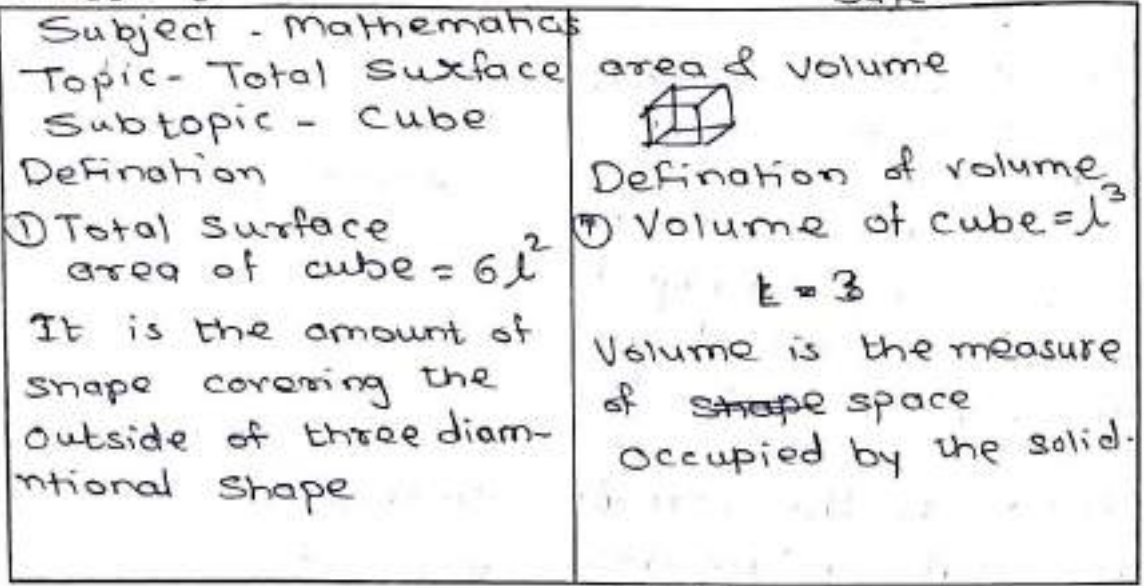 Subject - Mathematics
Topic - Total Surface area & volume
Subtopic - Cube
Defination
① Total Surface
area of cube = 6l²
It is the amount of
shape covering the
outside of three diam-
ntional Shape
Defination of volume
Volume of cube = l³
Volume is the measure
of shape space
occupied by the solid.